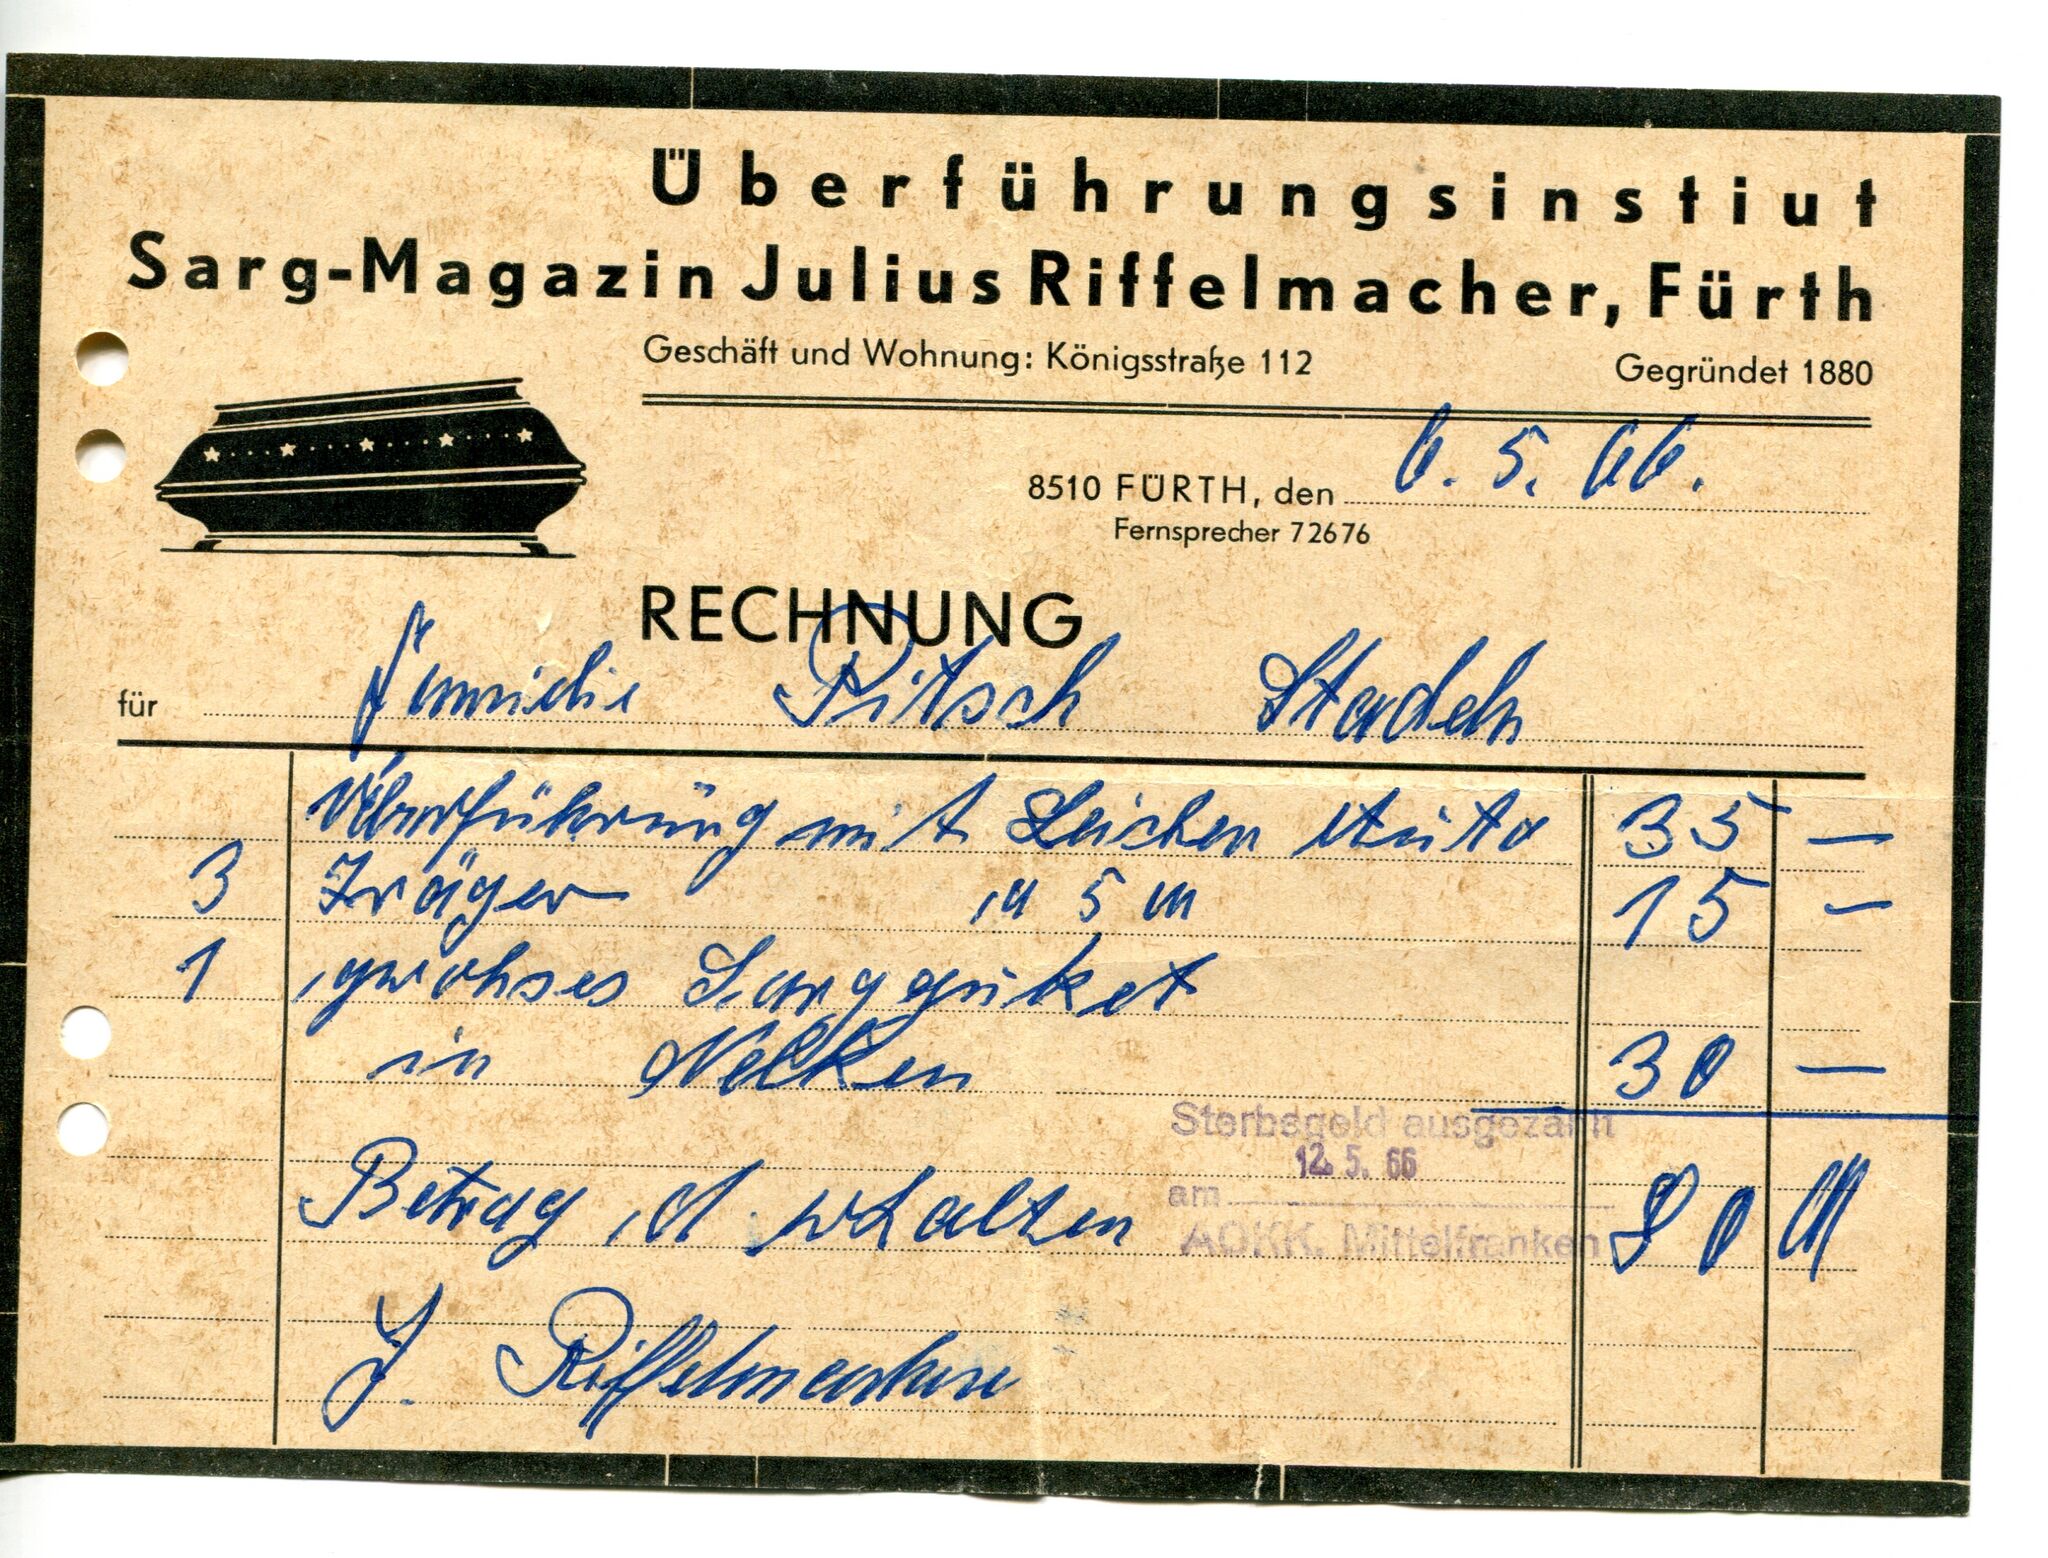 Überführungsinstiut
Sarg-Magazin Julius Riffelmacher, Fürth
Geschäft und Wohnung: Königsstraße 112 Gegründet 1880
8510 FÜRTH, den 6. 5. 66.
Fernsprecher 72676
RECHNUNG
für Familie Pitsch Stadeln
Überführung mit Leichen Auto 35 —
3 Träger 5 M 15 —
1 Sargbuket
in Nelken 30 —
Sterbegeld ausgezahlt
12. 5. 66
am
AOKK. Mittelfranken
Betrag d. erhalten 80 M
J. Riffelmacher